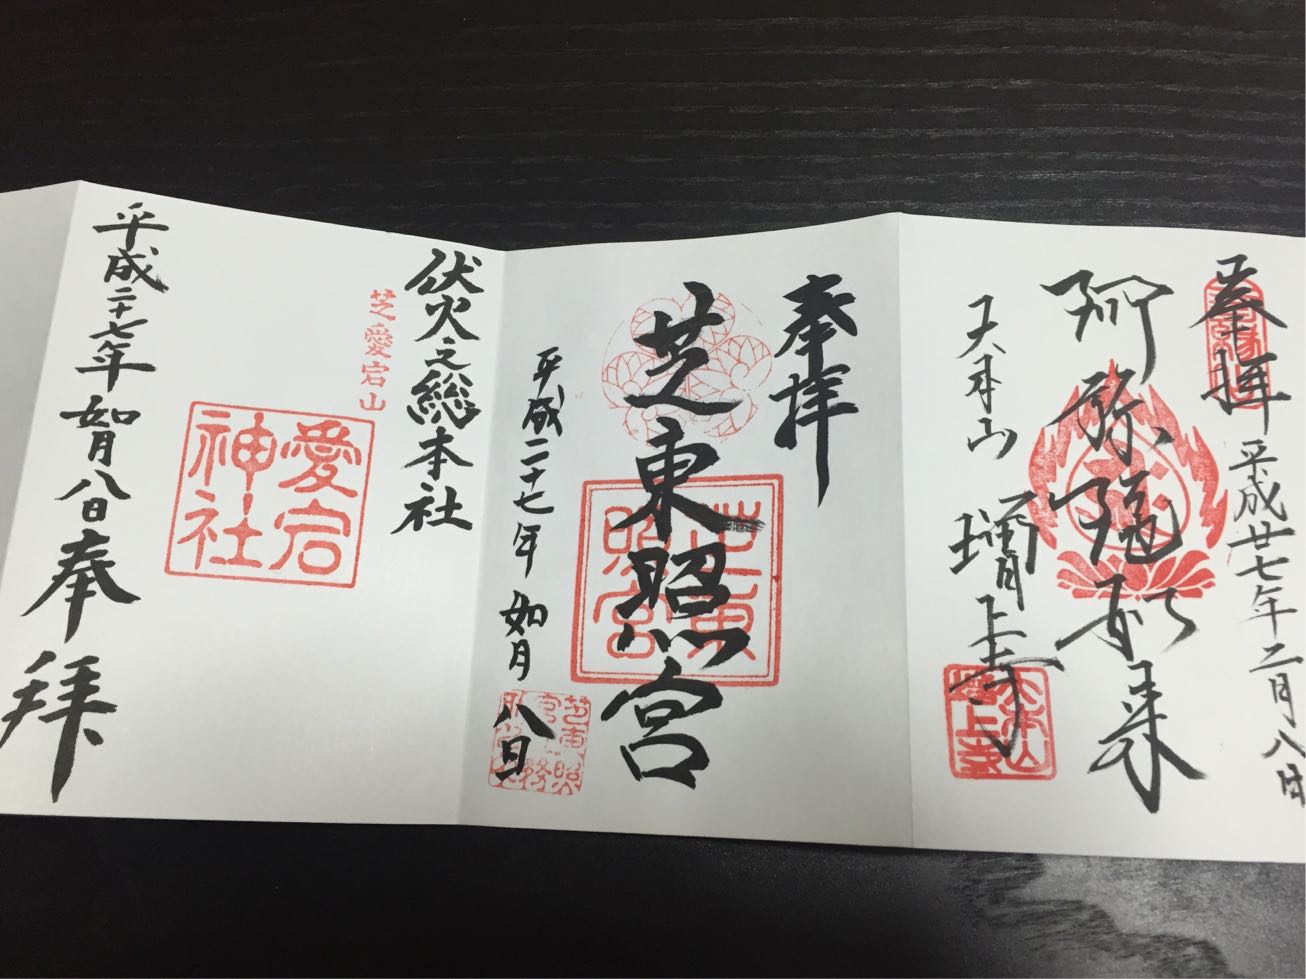 奉拝
平成廿七年二月八日
阿弥陀如来
大本山
増上寺
大本山
増上寺
奉拝
芝東照宮
芝東
照宮
平成二十七年如月八日
伏火之総本社
芝愛宕山
愛宕
神社
平成二十七年如月八日奉拜